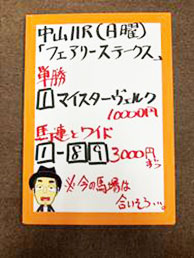 中山11R(日曜)
「フェアリーステークス」
単勝
1 マイスターヴェルク
10000円
馬連とワイド
1-8 9 3000円ずつ
※今の馬場は
合いそう…。